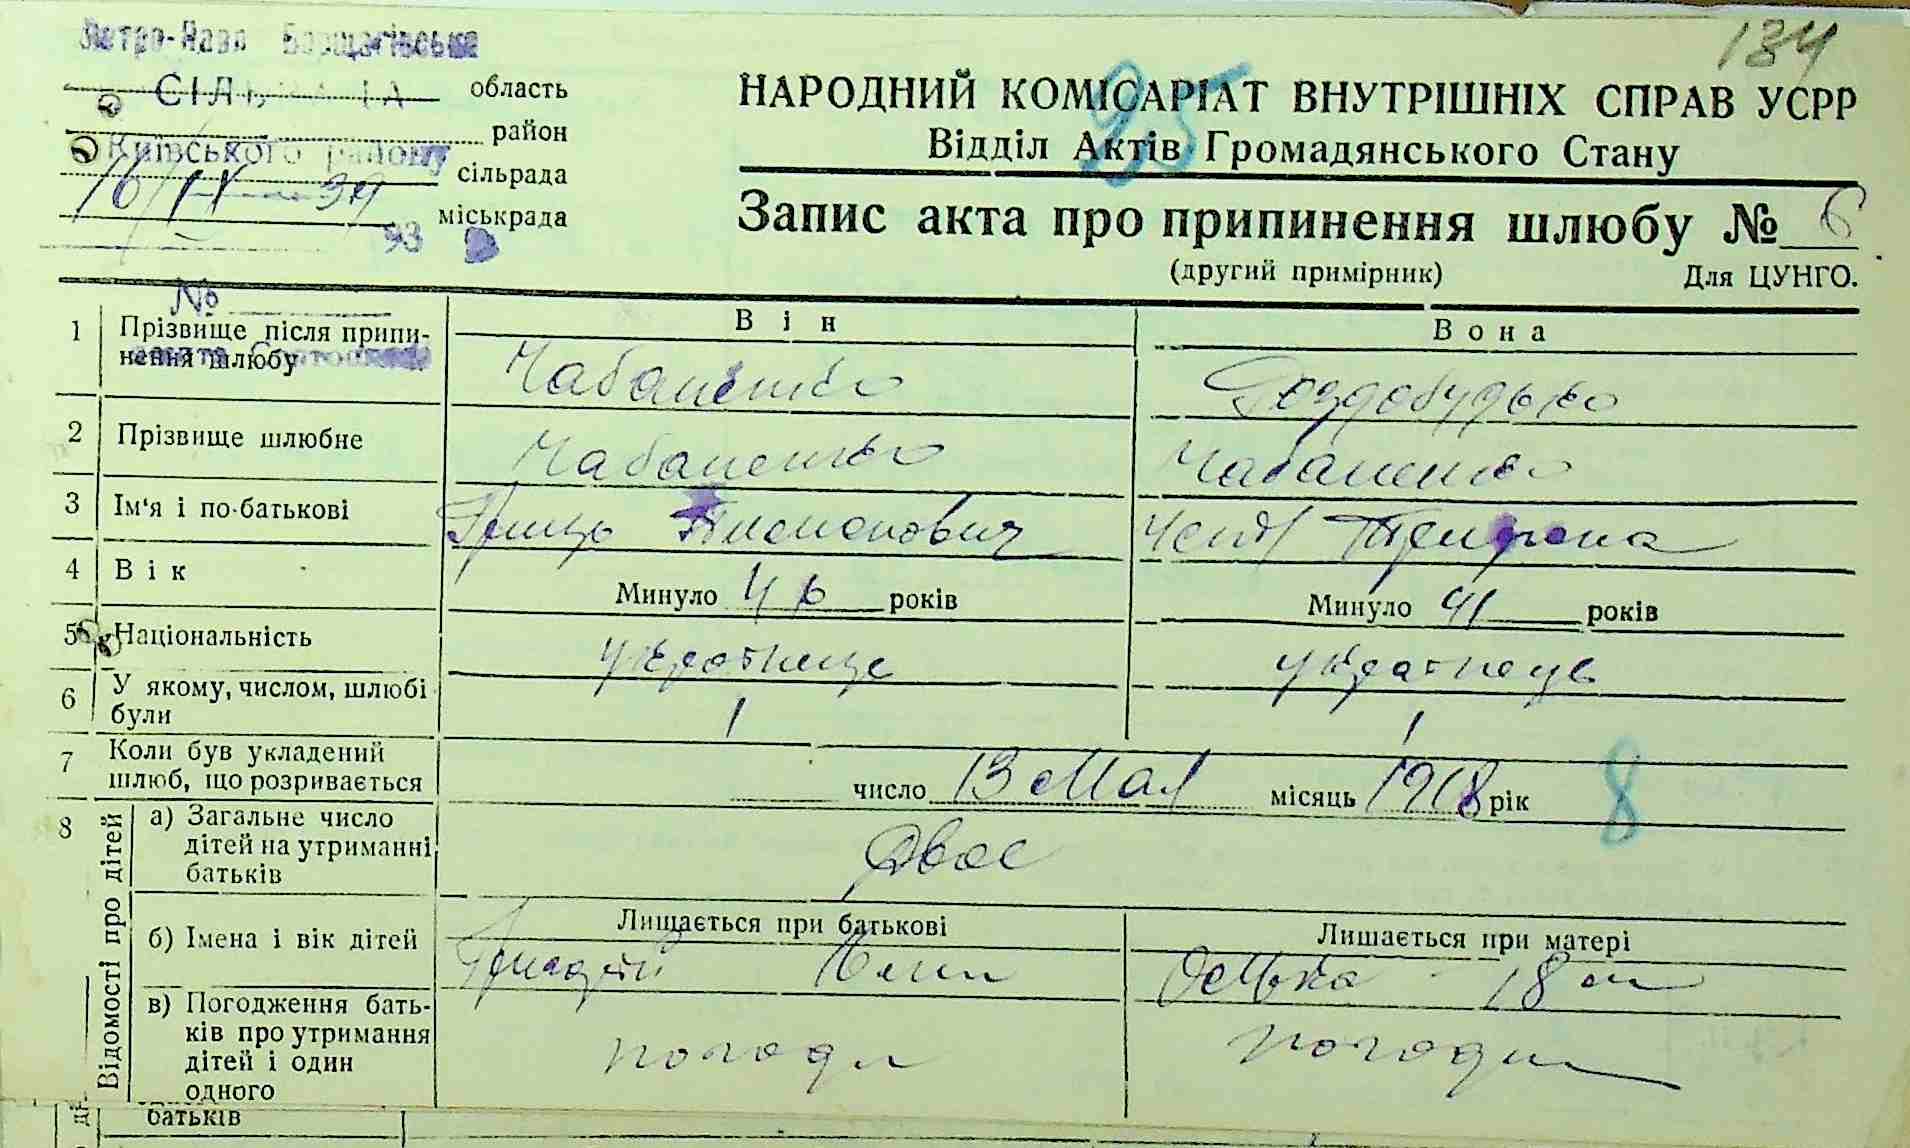 134
Борщагівська
область
район
Київського району
сільрада
16/IX 34
міськрада
93
НАРОДНИЙ КОМІСАРІАТ ВНУТРІШНІХ СПРАВ УСРР
95
Відділ Актів Громадянського Стану
Запис акта про припинення шлюбу № 6
(другий примірник) Для ЦУНГО.
№
Він Вона
1 Прізвище після припи-
нення шлюбу Чабаненко Роздобудько
2 Прізвище шлюбне Чабаненко Чабаненко
3 Ім'я і по-батькові Гриць
4 Вік Минуло років Минуло 41 років
5 Національність українець українець
6 У якому, числом, шлюбі
були 1 1
7 Коли був укладений
шлюб, що розривається число 13 Мая місяць 1918 рік 8
8 Відомості про дітей
а) Загальне число
дітей на утриманні
батьків Двоє
Лищається при батькові Лишається при матері
б) Імена і вік дітей 18
в) Погодження бать-
ків про утримання
дітей і один
одного
батьків